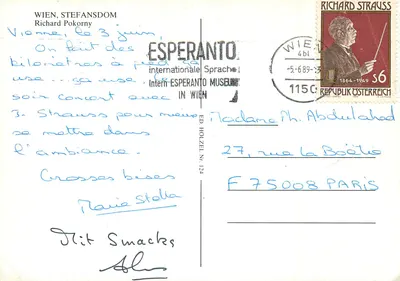 WIEN, STEFANSDOM
Richard Pokorny
Vienne, le 3 juin,
On fait des
kilomètres à pied ça
use... ça use. Ce
soir concert avec
J. Strauss pour mieux
se mettre dans
l'ambiance.
Grosses bises
Marie Stella
Mit Smacks
ED. HÖLZEL Nr 124
ESPERANTO
Internationale Sprache
Intern ESPERANTO MUSEUM
IN WIEN
WIEN
-5.-6.89-
1150
RICHARD STRAUSS
1864-1949
S6
REPUBLIK ÖSTERREICH
Madame Ph. Abdulahad
27, rue la Boëtie
F 75008 PARIS